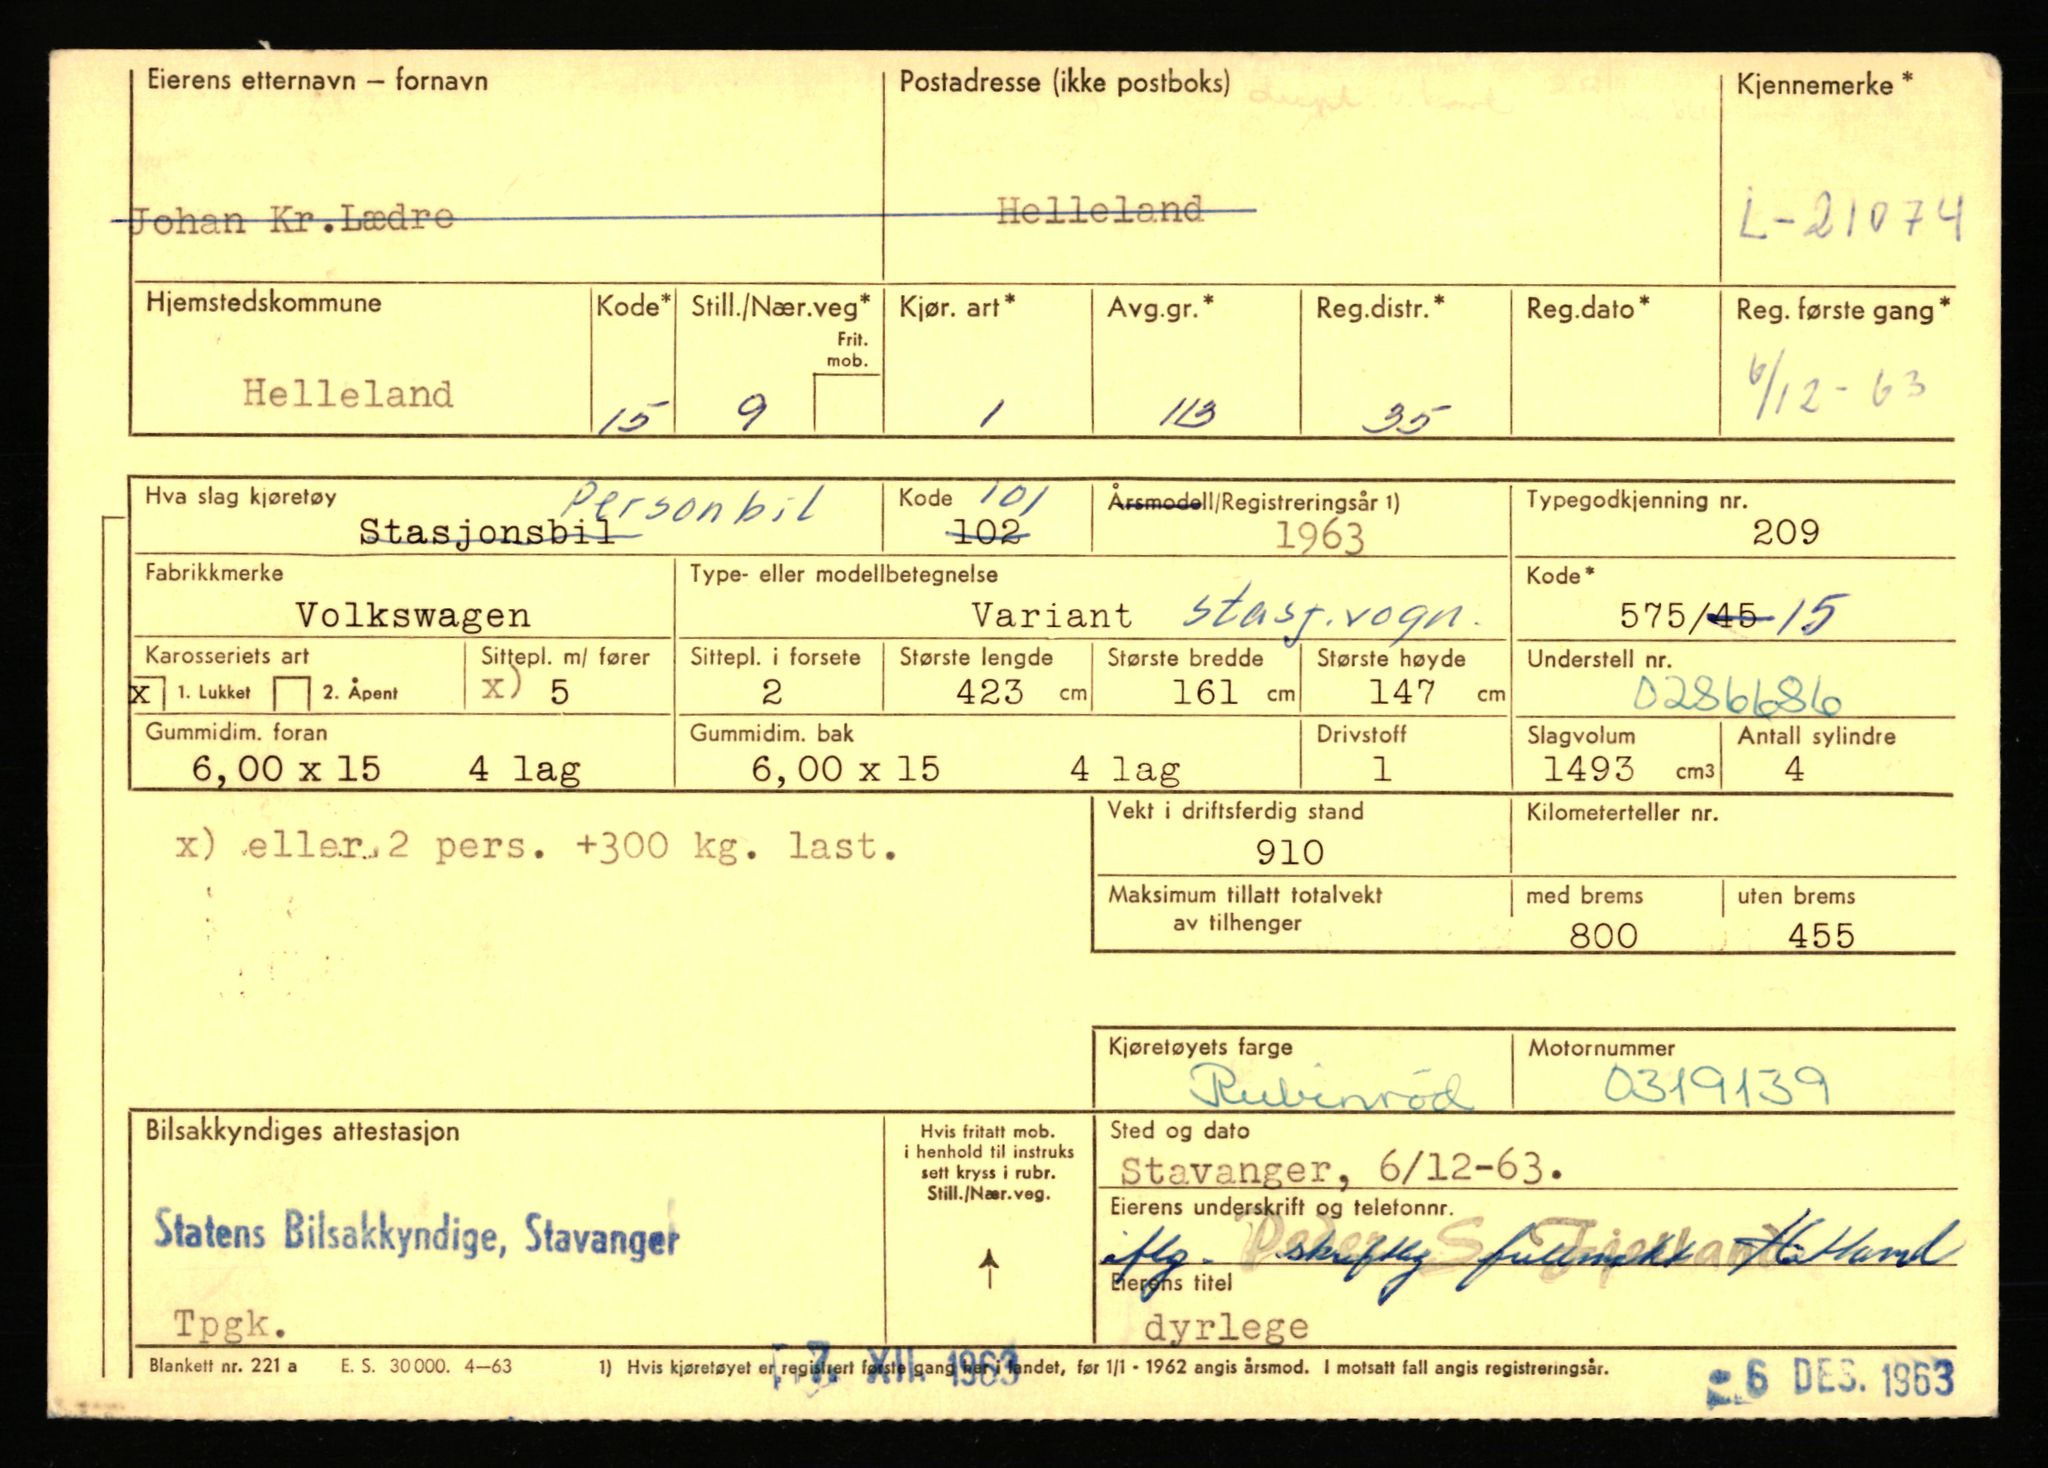 Eierens etternavn – fornavn Postadresse (ikke postboks) Kjennemerke*
Johan Kr. Lædre Helleland L-21074
Hjemstedskommune Kode* Still./Nær.veg* Kjør. art* Avg.gr.* Reg.distr.* Reg.dato* Reg. første gang*
Frit.
mob.
Helleland 15 9 1 113 35 6/12-63
Hva slag kjøretøy Personbil Kode 101 Årsmodell/Registreringsår 1) Typegodkjenning nr.
Stasjonsbil 102 1963 209
Fabrikkmerke Type- eller modellbetegnelse Kode*
Volkswagen Variant stasj.vogn. 575/45 15
Karosseriets art Sittepl. m/ fører Sittepl. i forsete Største lengde Største bredde Største høyde Understell nr.
x 1. Lukket 2. Åpent x) 5 2 423 cm 161 cm 147 cm 0286686
Gummidim. foran Gummidim. bak Drivstoff Slagvolum Antall sylindre
6,00 x 15 4 lag 6,00 x 15 4 lag 1 1493 cm3 4
Vekt i driftsferdig stand Kilometerteller nr.
x) eller 2 pers. +300 kg. last. 910
Maksimum tillatt totalvekt med brems uten brems
av tilhenger 800 455
Kjøretøyets farge Motornummer
Rubinröd 0319139
Bilsakkyndiges attestasjon Hvis fritatt mob.
i henhold til instruks
sett kryss i rubr.
Still./Nær.veg.
Sted og dato
Stavanger, 6/12-63.
Eierens underskrift og telefonnr.
Statens Bilsakkyndige, Stavanger
iflg. skriftlig fullmakt
Eierens titel
Tpgk. dyrlege
Blankett nr. 221 a E. S. 30 000. 4–63 1) Hvis kjøretøyet er registrert første gang her i landet, før 1/1 - 1962 angis årsmod. I motsatt fall angis registreringsår.
7. XII. 1963 6 DES. 1963